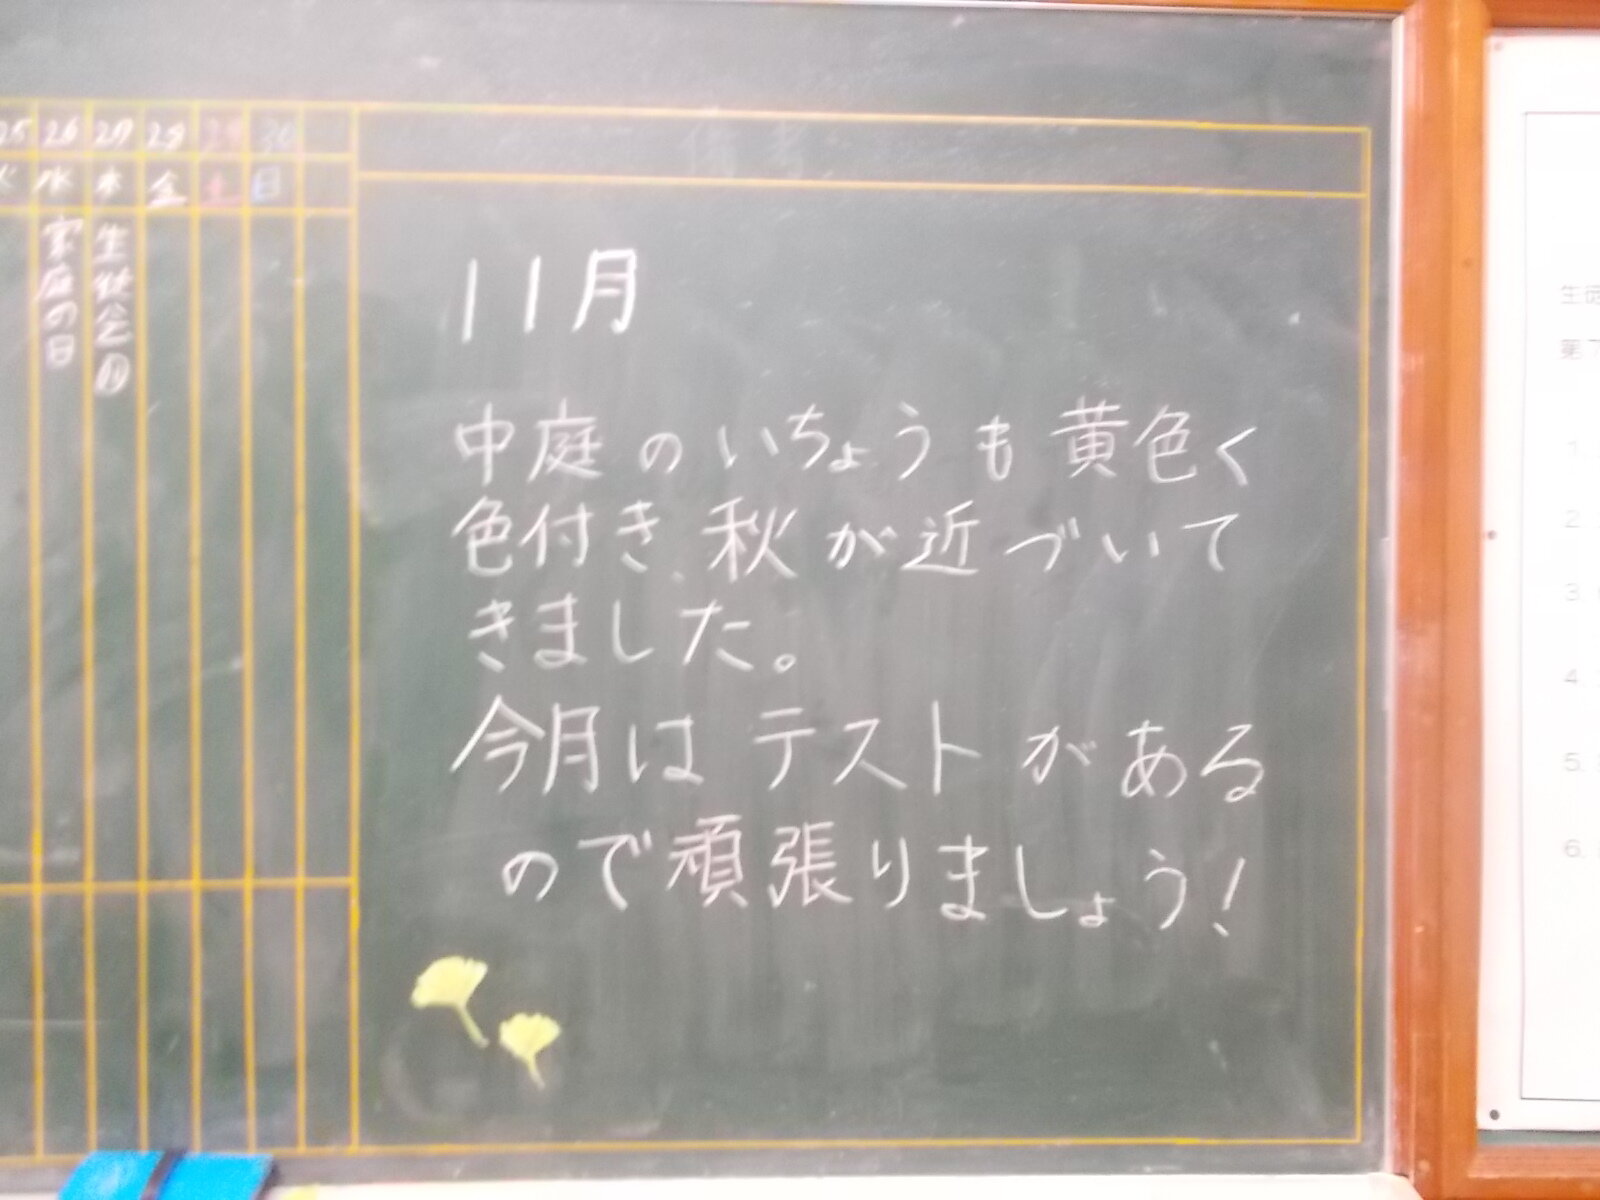 備考
11月
中庭のいちょうも黄色く
色付き、秋が近づいて
きました。
今月はテストがある
ので頑張りましょう!
25 26 27 28 29 30
火 水 木 金 土 日
家庭の日
生徒会⑪
生徒
第7
1.
2.
3.
4.
5.
6.